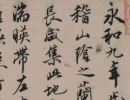 永和九年
稽山陰之蘭
長咸集此地
湍暎帶左